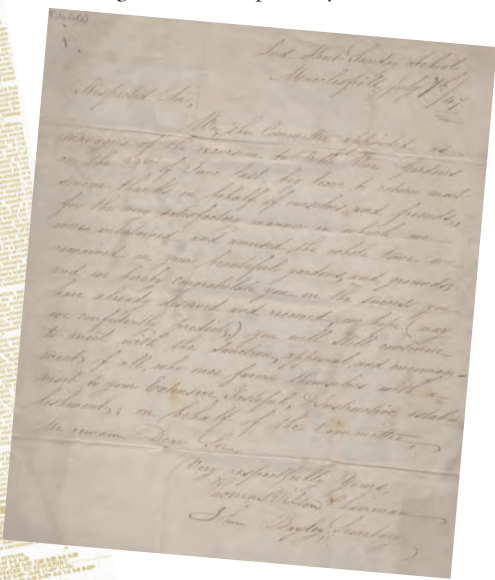 Sunday School,
Macclesfield, July 7th/47
Respected Sir,
We, the Committee appointed as
managers of the excursion to Belle Vue Gardens
on the 22nd of June last, beg leave to return most
sincere thanks on behalf of ourselves and friends,
for the very satisfactory manner in which we
were entertained and amused the whole time we
remained in your beautiful gardens, and grounds
and we hereby congratulate you on the success you
have already deserved and received, and hope (nay
we confidently predict,) you will still continue
to meet with the sanction, approval, and encourage-
ments of all, who once favour themselves with a
visit to your Extensive, Tasteful, & Instructive estab-
lishment; on behalf of the Committee,
We remain Dear Sir,
Very respectfully Yours,
Thomas Wilson Chairman
John Bayley, Secretary